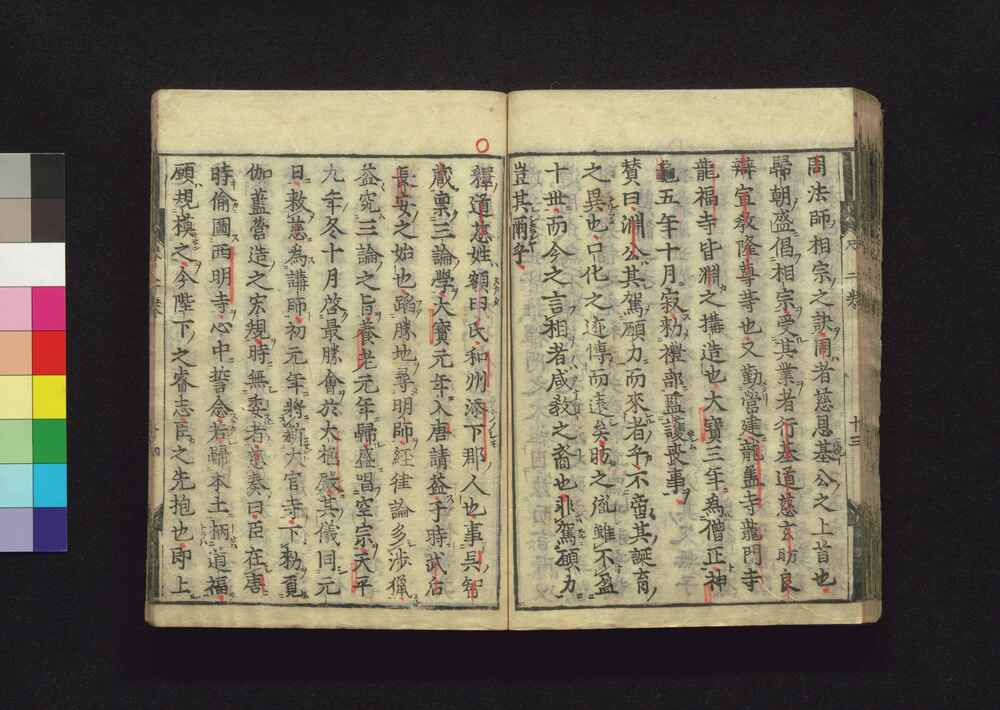 周法師相宗之訣周者慈恩基公之上首也
歸朝盛倡相宗受其業者行基道慈玄昉良
辯宣敎隆尊等也又勤營建龍蓋寺龍門寺
龍福寺皆淵之搆造也大寶三年爲僧正神
龜五年十月寂勅禮部監護喪事
賛曰淵公其駕願力而來者乎不啻其誕育
之異也口化之迹博而遠矣昉之流雖不盈
十世而今之言相者咸敎之裔也非駕願力
豈其爾乎
釋道慈姓額田氏和州添下郡人也事吳智
藏稟三論學大寶元年入唐請益于時武后
長安之始也蹈勝地尋明師經律論多涉獵
益究三論之旨養老元年歸盛唱空宗天平
九年冬十月啓最勝會於太極殿其儀同元
日敕慈爲講師初元年將新大官寺下勅覓
伽藍營造之宏規時無委者慈奏曰臣在唐
時偷圖西明寺心中誓念若歸本土柄道福
顧規模之今陛下之睿志臣之先抱也卽上
二卷
十三